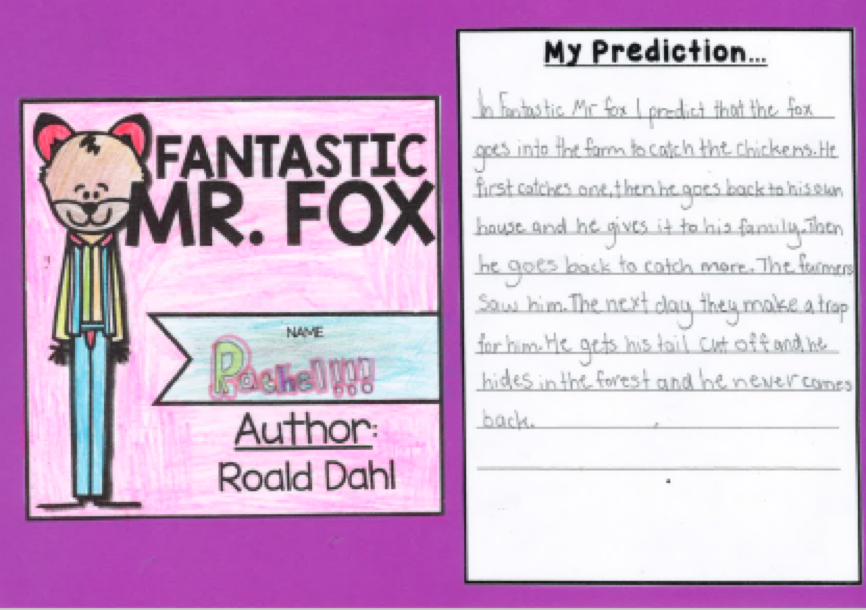 FANTASTIC
MR. FOX
NAME
Rachel!!!
Author:
Roald Dahl
My Prediction...
In Fantastic Mr fox I predict that the fox
goes into the farm to catch the chickens. He
first catches one, then he goes back to his own
house and he gives it to his family. Then
he goes back to catch more. The farmers
saw him. The next day they make a trap
for him. He gets his tail cut off and he
hides in the forest and he never comes
back.